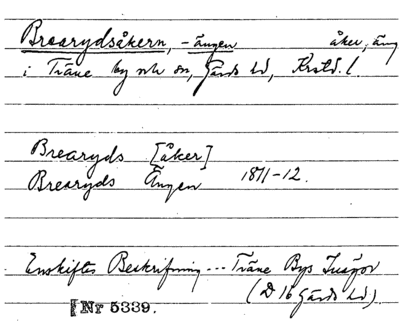 Brearydsåkern, -ängen åker, äng
i Träne by och sn, Gärds hd, Krstd. l.
Brearyds [åker]
Brearyds Ängen 1811-12.
Enskiftes Beskrifning ... Träne Bys Inägor
(D 16 Gärds hd)
Nr 5339.